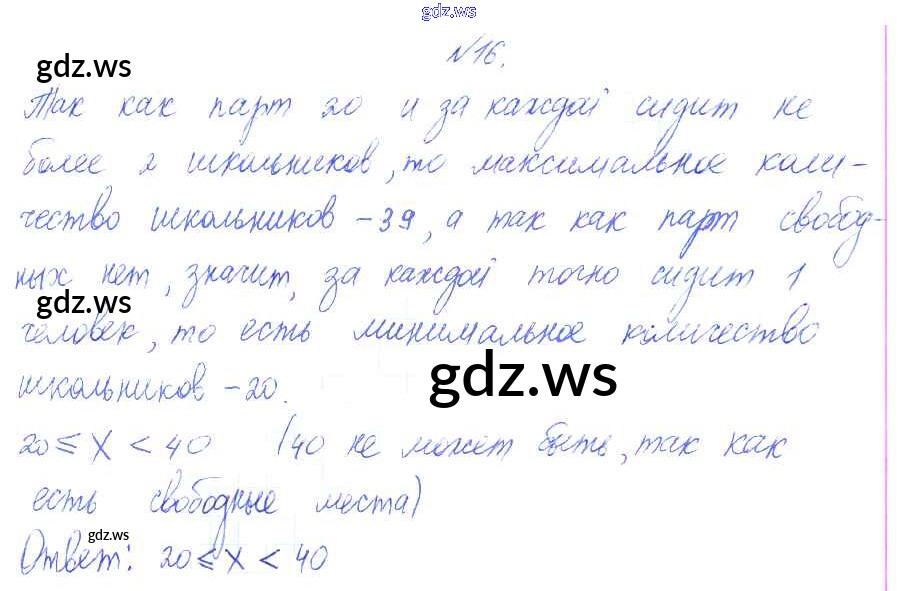 gdz.ws
№16.
gdz.ws
Так как парт 20 и за каждой сидит не
более 2 школьников, то максимальное коли-
чество школьников - 39, а так как парт свобод-
ных нет, значит, за каждой точно сидит 1
gdz.ws
человек, то есть минимальное количество
школьников - 20.
gdz.ws
20 ≤ x < 40 (40 не может быть, так как
есть свободные места)
gdz.ws
Ответ: 20 ≤ x < 40